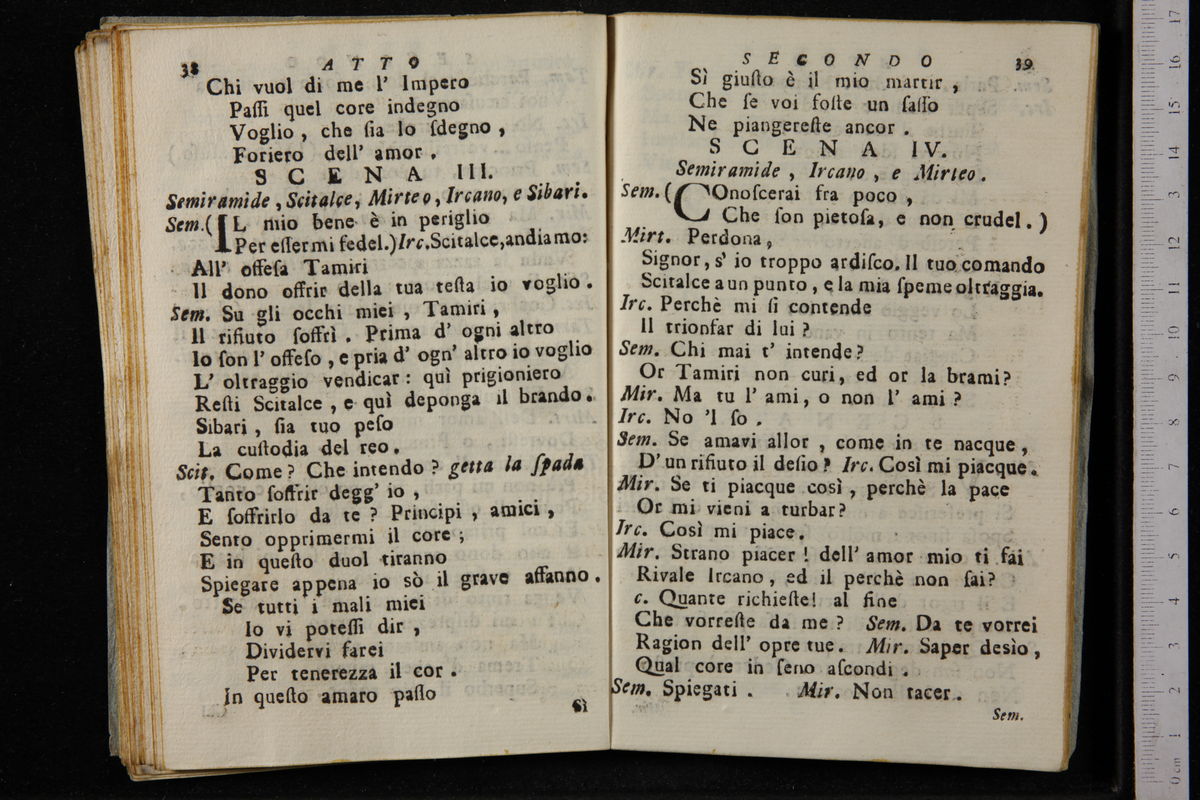 38 ATTO
Chi vuol di me l' Impero
Paſſi quel core indegno
Voglio, che ſia lo ſdegno,
Foriero dell' amor.
SCENA III.
Semiramide, Scitalce, Mirteo, Ircano, e Sibari.
Sem. (IL mio bene è in periglio
Per eſſermi fedel.) Irc. Scitalce, andiamo:
All' offeſa Tamiri
Il dono offrir della tua teſta io voglio.
Sem. Su gli occhi miei, Tamiri,
Il rifiuto ſoffrì. Prima d' ogni altro
Io ſon l' offeſo, e pria d' ogn' altro io voglio
L' oltraggio vendicar: quì prigioniero
Reſti Scitalce, e quì deponga il brando.
Sibari, ſia tuo peſo
La cuſtodia del reo.
Scit. Come? Che intendo? getta la ſpada
Tanto ſoffrir degg' io,
E ſoffrirlo da te? Principi, amici,
Sento opprimermi il core;
E in queſto duol tiranno
Spiegare appena io sò il grave affanno.
Se tutti i mali miei
Io vi poteſſi dir,
Dividervi farei
Per tenerezza il cor.
In queſto amaro paſſo
Sì
SECONDO 39
Sì giuſto è il mio martir,
Che ſe voi foſte un ſaſſo
Ne piangereſte ancor.
SCENA IV.
Semiramide, Ircano, e Mirteo.
Sem. (COnoſcerai fra poco,
Che ſon pietoſa, e non crudel.)
Mirt. Perdona,
Signor, s' io troppo ardiſco. Il tuo comando
Scitalce a un punto, e la mia ſpeme oltraggia.
Irc. Perchè mi ſi contende
Il trionfar di lui?
Sem. Chi mai t' intende?
Or Tamiri non curi, ed or la brami?
Mir. Ma tu l' ami, o non l' ami?
Irc. No 'l ſo.
Sem. Se amavi allor, come in te nacque,
D' un rifiuto il deſio? Irc. Così mi piacque.
Mir. Se ti piacque così, perchè la pace
Or mi vieni a turbar?
Irc. Così mi piace.
Mir. Strano piacer! dell' amor mio ti fai
Rivale Ircano, ed il perchè non ſai?
c. Quante richieſte! al fine
Che vorreſte da me? Sem. Da te vorrei
Ragion dell' opre tue. Mir. Saper desìo,
Qual core in ſeno aſcondi.
Sem. Spiegati. Mir. Non tacer.
Sem.
17
16
15
14
13
12
11
10
9
8
7
6
5
4
3
2
1
0 cm